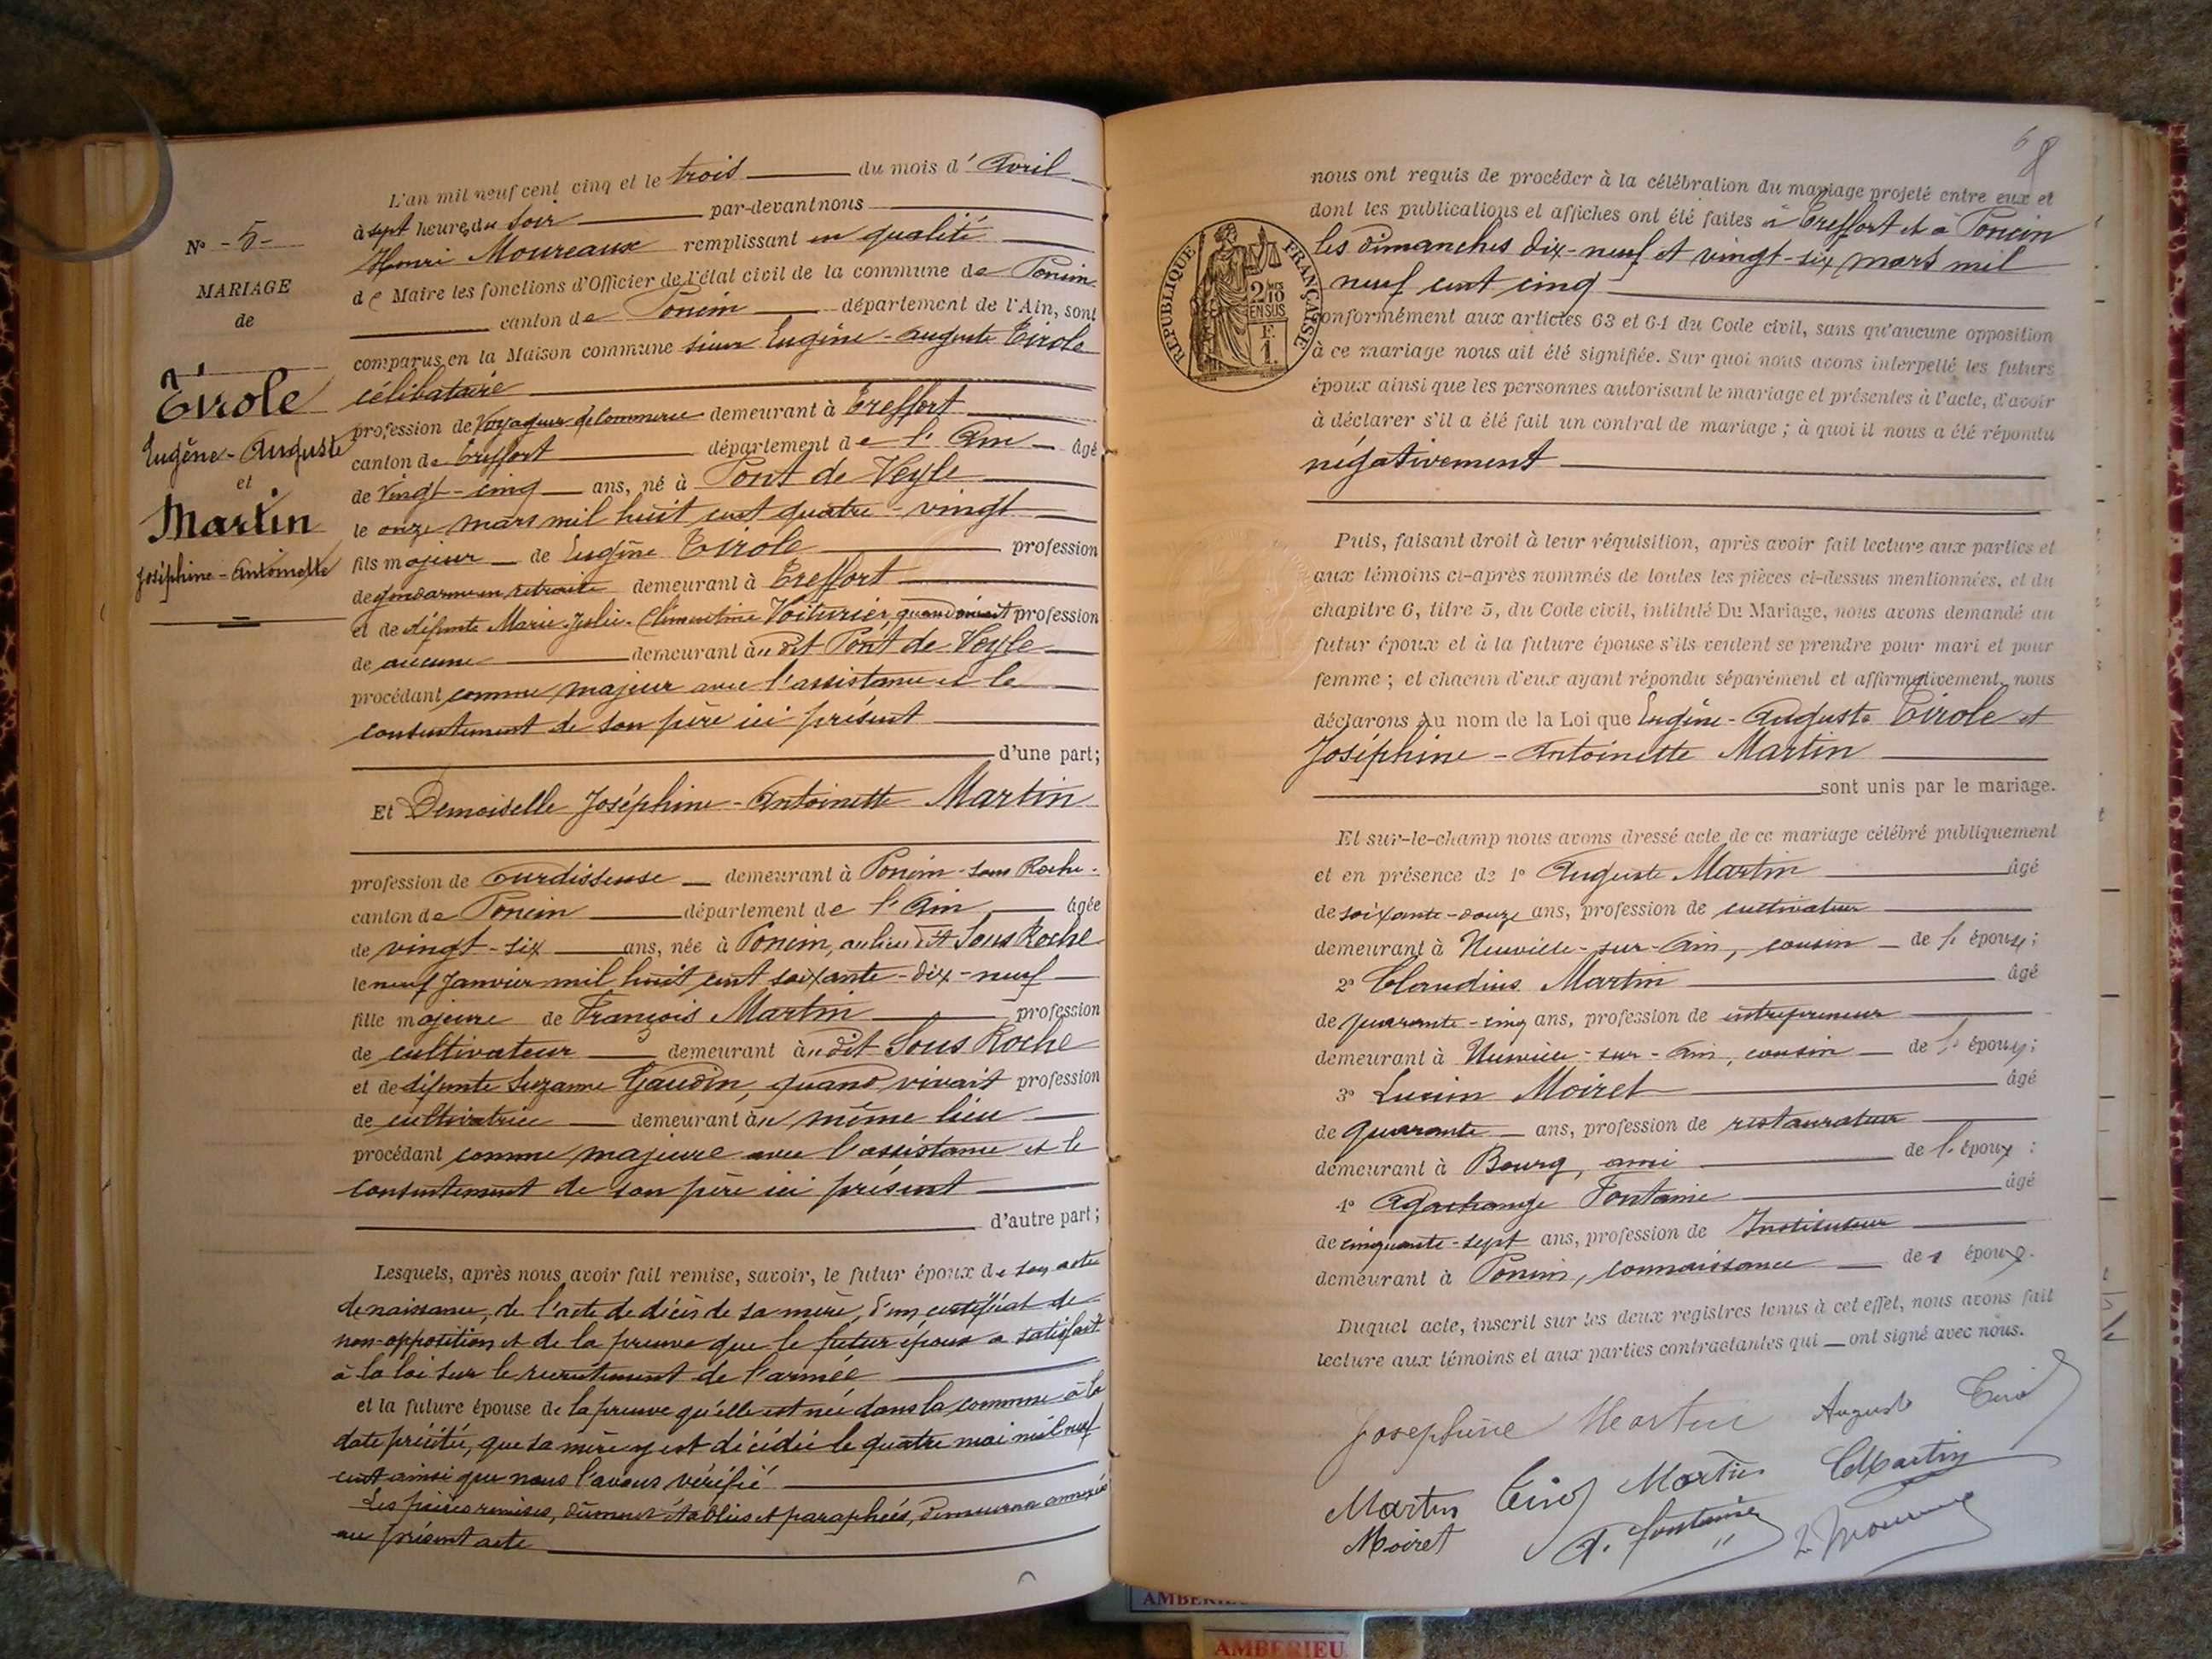 N° - 5 -
MARIAGE
de
Tirole
Eugène - Auguste
et
Martin
Joséphine - Antoinette
L'an mil neuf cent cinq et le trois du mois d' Avril
à sept heures du soir par-devant nous
Henri Moureaux remplissant en qualité
de Maire les fonctions d'Officier de l'état civil de la commune de Poncin
canton de Poncin département de l'Ain, sont
comparus en la Maison commune sieur Eugène - Auguste Tirole
célibataire
profession de Voyageur de Commerce demeurant à Treffort
canton de Treffort département de l'Ain âgé
de vingt - cinq ans, né à Pont de Veyle
le onze mars mil huit cent quatre - vingt
fils majeur de Eugène Tirole profession
de gendarme en retraite demeurant à Treffort
et de défunte Marie Julie - Clémentine Voiturier, quand vivait profession
de aucune demeurant au dit Pont de Veyle
procédant comme majeur avec l'assistance et le
consentement de son père ici présent
d'une part;
Et Demoiselle Joséphine - Antoinette Martin
profession de Ourdisseuse demeurant à Poncin - sous Roche -
canton de Poncin département de l'Ain âgée
de vingt - six ans, née à Poncin, au lieu dit Sous Roche
le neuf Janvier mil huit cent soixante - dix - neuf
fille majeure de François Martin profession
de cultivateur demeurant au dit Sous Roche
et de défunte Suzanne Gaudin, quand vivait profession
de cultivatrice demeurant au même lieu
procédant comme majeure avec l'assistance et le
consentement de son père ici présent
d'autre part;
Lesquels, après nous avoir fait remise, savoir, le futur époux de son acte
de naissance, de l'acte de décès de sa mère, d'un certificat de
non-opposition et de la preuve que le futur époux a satisfait
à la loi sur le recrutement de l'armée
et la future épouse de la preuve qu'elle est née dans la commune à la
date précitée, que sa mère y est décédée le quatre mai mil neuf
cent ainsi que nous l'avons vérifié
Les pièces remises, dûment établies et paraphées, demeureront annexées
au présent acte
8
RÉPUBLIQUE FRANÇAISE
2/10 EN SUS
F.
1.
nous ont requis de procéder à la célébration du mariage projeté entre eux et
dont les publications et affiches ont été faites à Treffort et à Poncin
les dimanches dix-neuf et vingt-six mars mil
neuf cent cinq
conformément aux articles 63 et 64 du Code civil, sans qu'aucune opposition
à ce mariage nous ait été signifiée. Sur quoi nous avons interpellé les futurs
époux ainsi que les personnes autorisant le mariage et présentes à l'acte, d'avoir
à déclarer s'il a été fait un contrat de mariage; à quoi il nous a été répondu
négativement
Puis, faisant droit à leur réquisition, après avoir fait lecture aux parties et
aux témoins ci-après nommés de toutes les pièces ci-dessus mentionnées, et du
chapitre 6, titre 5, du Code civil, intitulé Du Mariage, nous avons demandé au
futur époux et à la future épouse s'ils veulent se prendre pour mari et pour
femme; et chacun d'eux ayant répondu séparément et affirmativement, nous
déclarons au nom de la Loi que Eugène - Auguste Tirole et
Joséphine - Antoinette Martin
sont unis par le mariage.
Et sur-le-champ nous avons dressé acte de ce mariage célébré publiquement
et en présence de 1° Auguste Martin âgé
de soixante-douze ans, profession de cultivateur
demeurant à Neuville - sur - Ain, cousin de l'épouse;
2° Claudius Martin âgé
de quarante - cinq ans, profession de entrepreneur
demeurant à Neuville - sur - Ain, cousin de l'épouse;
3° Lucien Moiret âgé
de quarante ans, profession de restaurateur
demeurant à Bourg, ami de l'époux;
4° Fontaine âgé
de cinquante - sept ans, profession de Instituteur
demeurant à Poncin, connaissance de l'époux.
Duquel acte, inscrit sur les deux registres tenus à cet effet, nous avons fait
lecture aux témoins et aux parties contractantes qui ont signé avec nous.
Josephine Martin Auguste
Martin Martin Martin
Moiret Fontaine
AMBERIEU